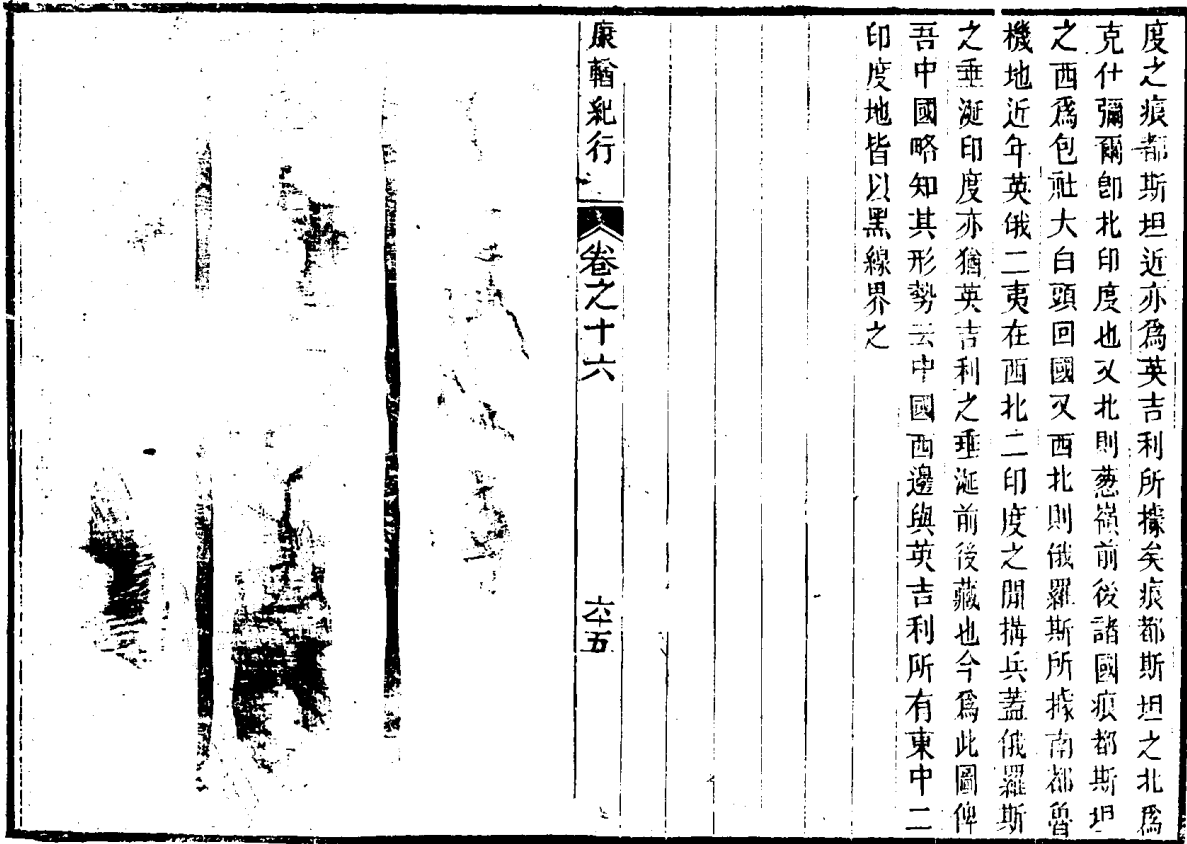 度之痕都斯坦近亦爲英吉利所據矣痕都斯坦之北爲
克什彌爾卽北印度也又北則葱嶺前後諸國痕都斯坦
之西爲包社大白頭回國又西北則俄羅斯所據南都魯
機地近年英俄二夷在西北二印度之間搆兵蓋俄羅斯
之垂涎印度亦猶英吉利之垂涎前後藏也今爲此圖俾
吾中國略知其形勢云中國西邊與英吉利所有東中二
印度地皆以黑線界之
康輶紀行
卷之十六
六十五